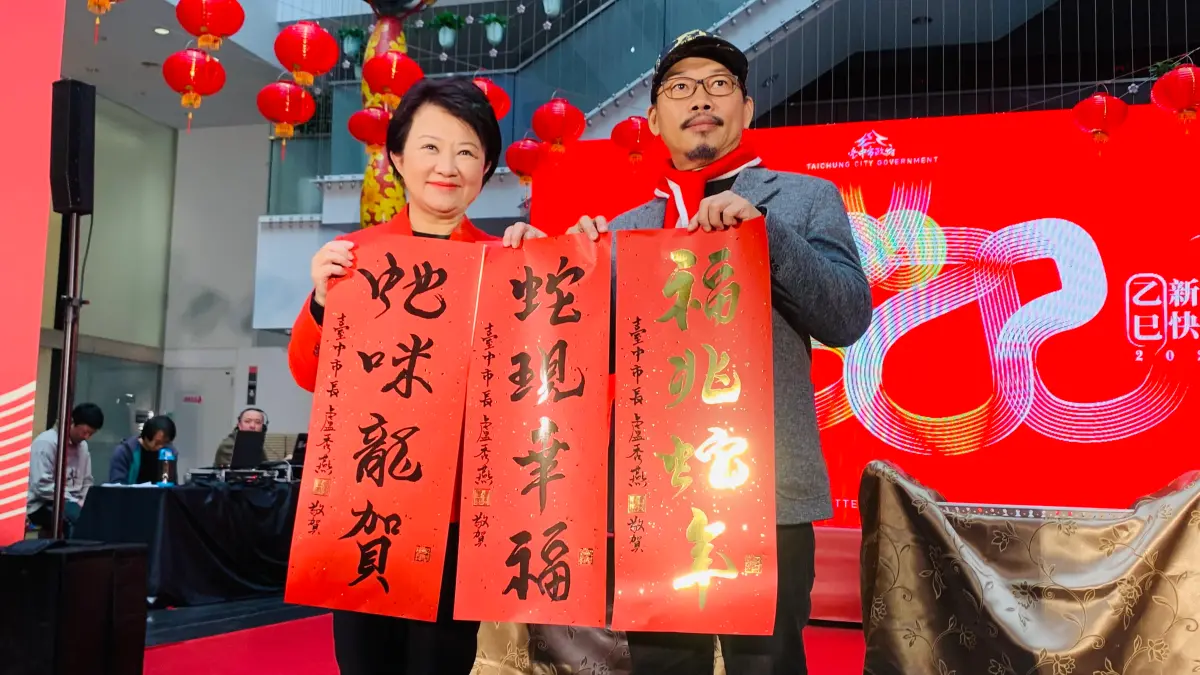 虵咪龍賀
臺中市長 盧秀燕 敬賀
蛇現華福
臺中市長 盧秀燕 敬賀
福兆蛇年
臺中市長 盧秀燕 敬賀
臺中市政府
TAICHUNG CITY GOVERNMENT
新快
乙巳